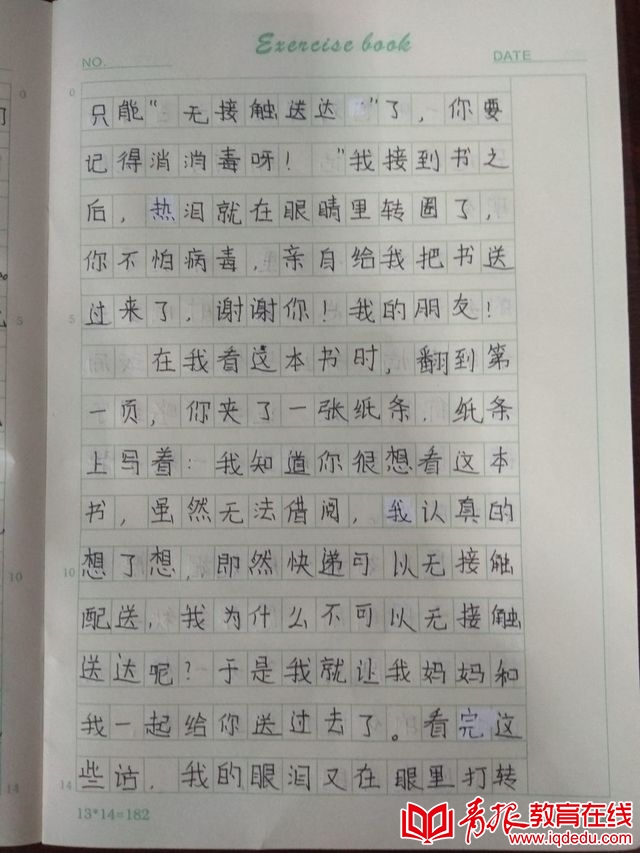 Exercise book
NO.
DATE
只能“无接触送达”了，你要
记得消消毒呀！”我接到书之
后，热泪就在眼睛里转圈了，
你不怕病毒，亲自给我把书送
过来了，谢谢你！我的朋友！
在我看这本书时，翻到第
一页，你夹了一张纸条．纸条
上写着：我知道你很想看这本
书，虽然无法借阅，我认真的
想了想，即然快递可以无接触
配送，我为什么不可以无接触
送达呢？于是我就让我妈妈和
我一起给你送过去了。看完这
些话，我的眼泪又在眼里打转
0
5
10
14
0
5
10
14
13*14=182
青报教育在线
www.iqdedu.com